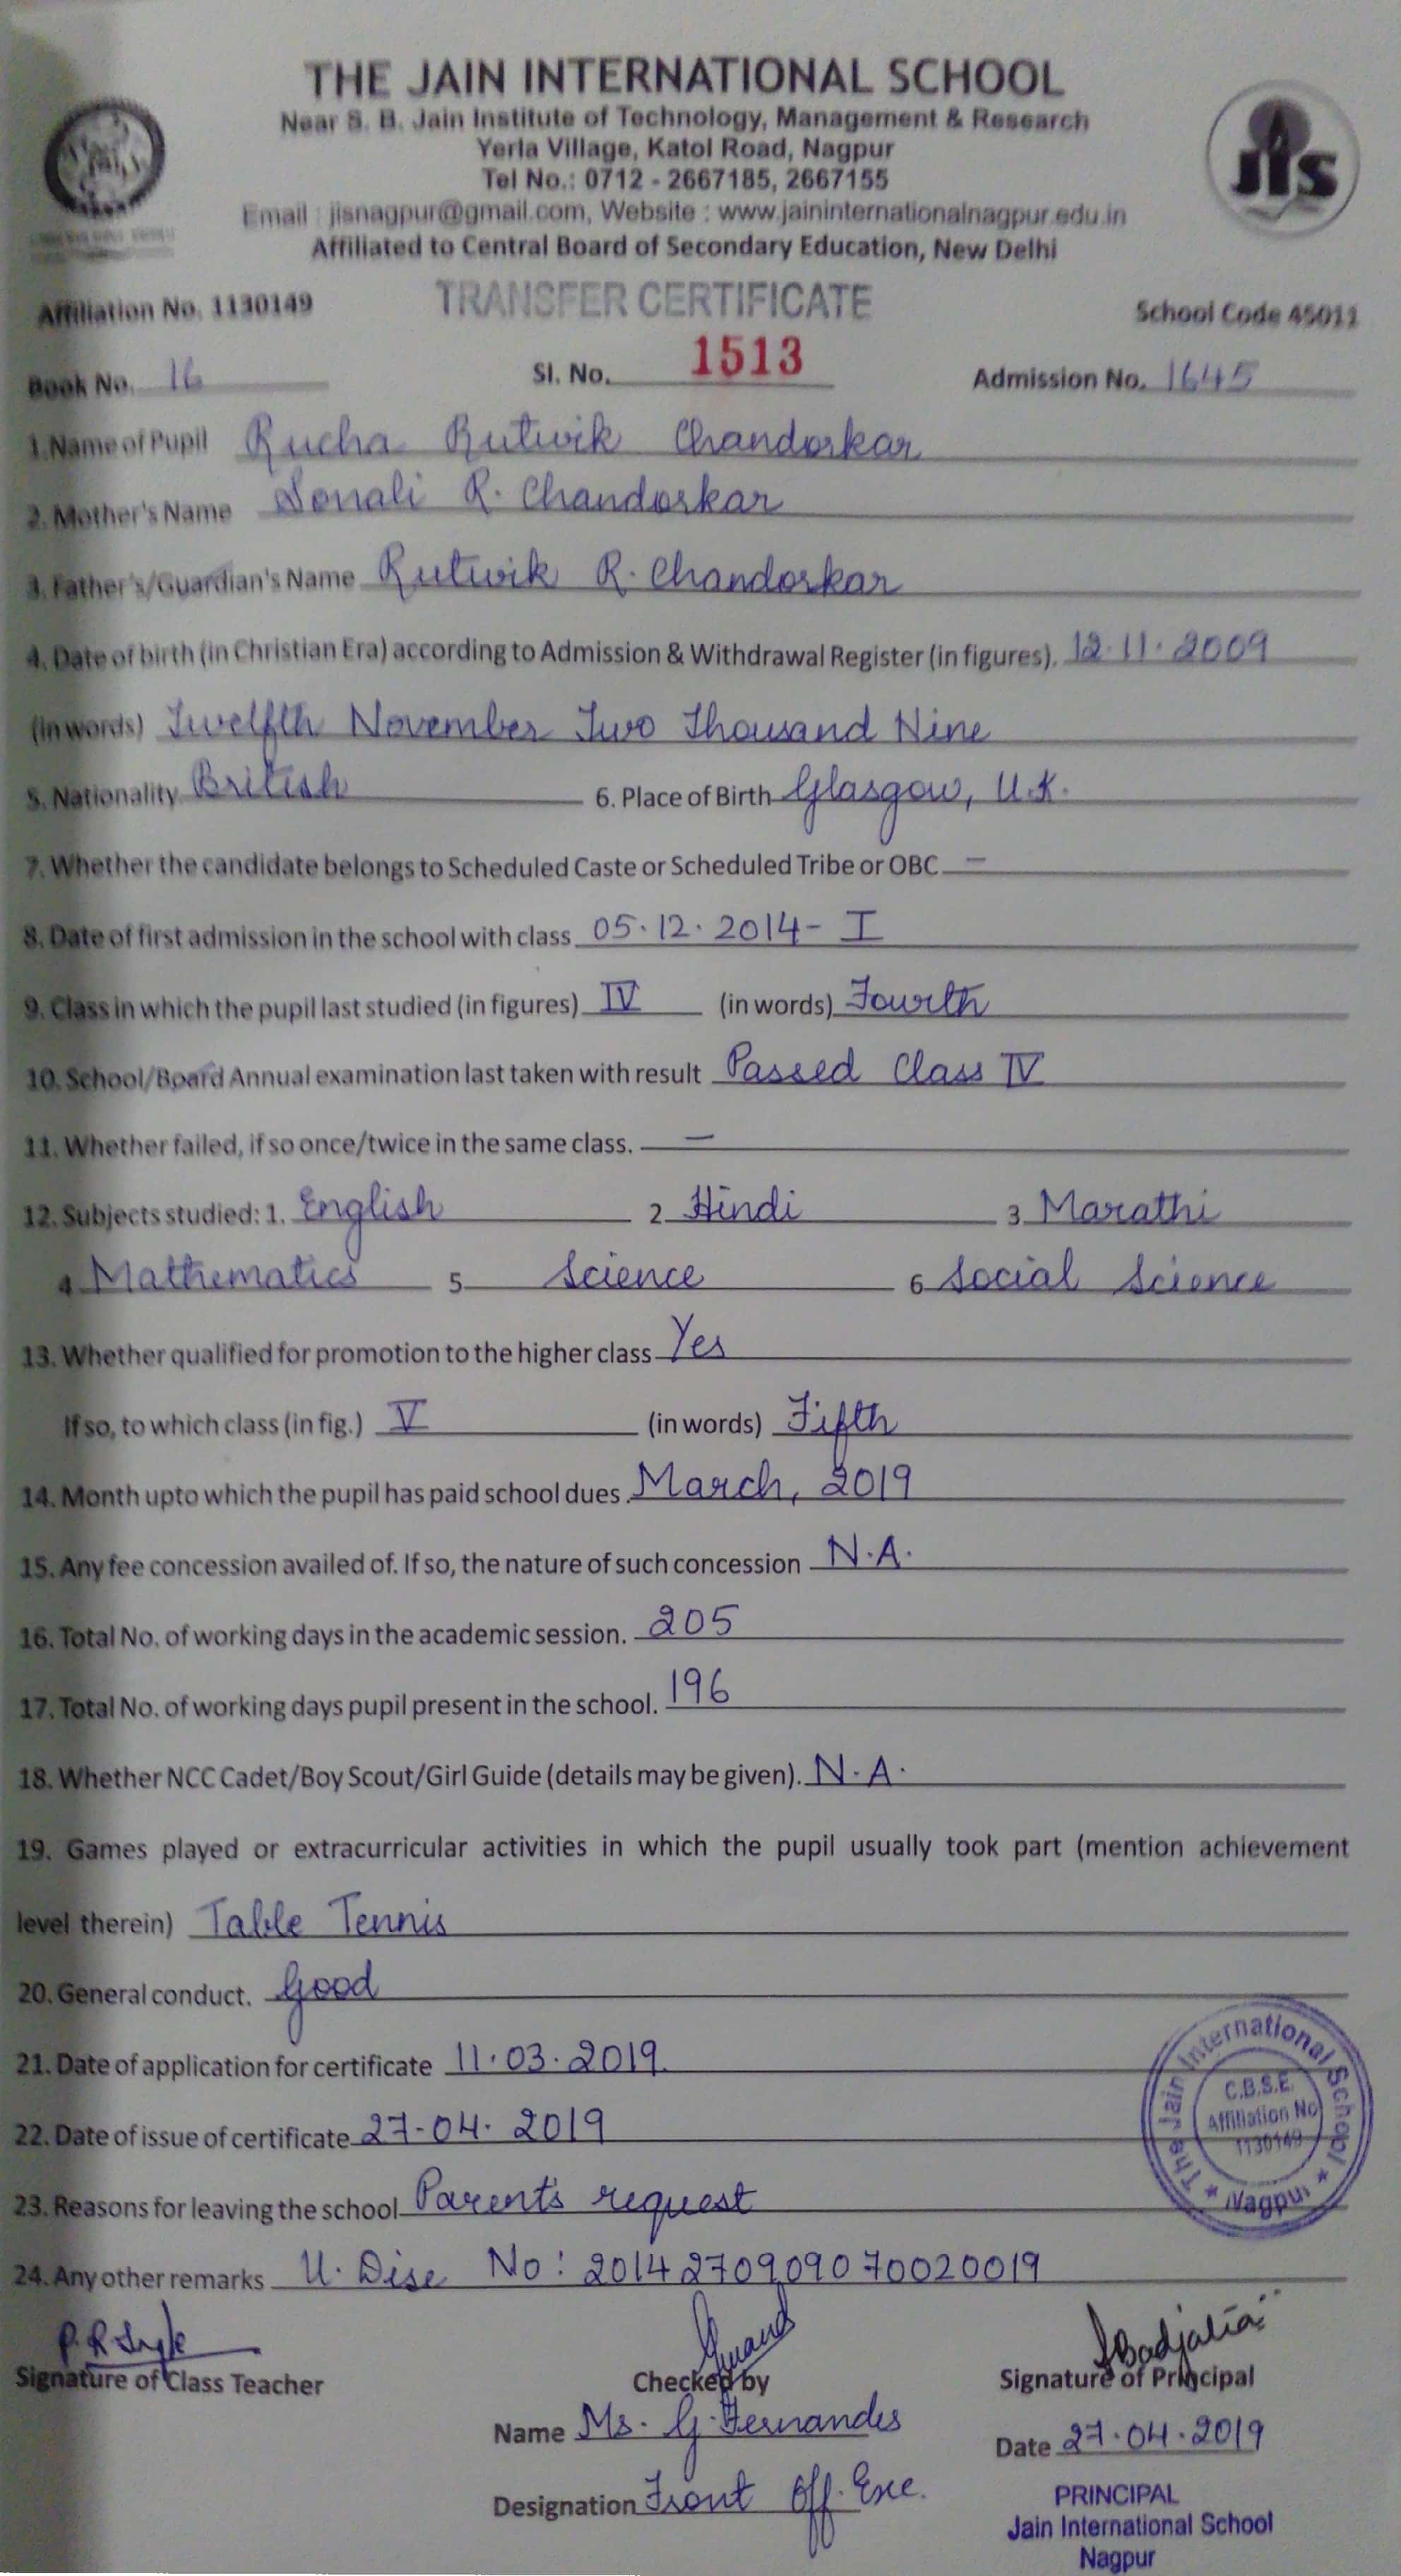 THE JAIN INTERNATIONAL SCHOOL
Near S. B. Jain Institute of Technology, Management & Research
Yerla Village, Katol Road, Nagpur
Tel No.: 0712 - 2667185, 2667155
Email : jisnagpur@gmail.com, Website : www.jaininternationalnagpur.edu.in
Affiliated to Central Board of Secondary Education, New Delhi
jis
Affiliation No. 1130149 TRANSFER CERTIFICATE School Code 45011
Book No. 16 Sl. No. 1513 Admission No. 1645
1. Name of Pupil Rucha Rutwik Chandorkar
2. Mother's Name Sonali R. Chandorkar
3. Father's/Guardian's Name Rutwik R. Chandorkar
4. Date of birth (in Christian Era) according to Admission & Withdrawal Register (in figures). 12.11.2009
(In words) Twelfth November Two Thousand Nine
5. Nationality British 6. Place of Birth Glasgow, U.K.
7. Whether the candidate belongs to Scheduled Caste or Scheduled Tribe or OBC —
8. Date of first admission in the school with class 05.12.2014 - I
9. Class in which the pupil last studied (in figures) IV (in words) Fourth
10. School/Board Annual examination last taken with result Passed Class IV
11. Whether failed, if so once/twice in the same class. —
12. Subjects studied: 1. English 2 Hindi 3 Marathi
4 Mathematics 5 Science 6 Social Science
13. Whether qualified for promotion to the higher class Yes
If so, to which class (in fig.) V (in words) Fifth
14. Month upto which the pupil has paid school dues. March, 2019
15. Any fee concession availed of. If so, the nature of such concession N.A.
16. Total No. of working days in the academic session. 205
17. Total No. of working days pupil present in the school. 196
18. Whether NCC Cadet/Boy Scout/Girl Guide (details may be given). N.A.
19. Games played or extracurricular activities in which the pupil usually took part (mention achievement
level therein) Table Tennis
20. General conduct. Good
21. Date of application for certificate 11.03.2019.
22. Date of issue of certificate 27-04.2019
23. Reasons for leaving the school Parent's request
24. Any other remarks U. Dise No: 2014270909070020019
The Jain International School ★ Nagpur ★
C.B.S.E.
Affiliation No
1130149
Signature of Class Teacher Checked by Signature of Principal
Name Ms. G. Fernandes Date 27.04.2019
Designation Front Off. Exe.
PRINCIPAL
Jain International School
Nagpur